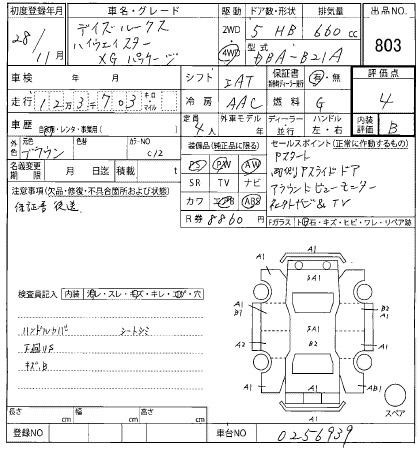 初度登録年月 車名・グレード 駆動 ドア数・形状 排気量 出品NO.
28/11月 デイズルークス ハイウェイスター XG パッケージ 2WD 4WD 5 HB 660cc 803
型式 DBA-B21A
車検 年 月 シフト IAT 保証書 有・無 評価点
走行 12万3千703 キロ マイル 冷房 AAC 燃料 G 4
車歴 自家用・レンタ・事業用( ) 定員 4人 外車モデル 年 ディーラー 並行 ハンドル 左・右 内装評価 B
外色 元色 ブラウン 色替 カラーNO C12
装備品(純正品に限る) セールスポイント(正常に作動するもの)
名義変更期限 月 日迄 積載量 t
PS PW AW
SR TV ナビ
カワ エアB ABS
R券 8860円
Pスタート
両側Pスライドドア
アラウンドビューモニター
ナビ & TV
注意事項(欠品・修復・不具合箇所および状態)
保証書 後送
Fガラス トビ石・キズ・ヒビ・ワレ・リペア跡
検査員記入 内装 ヨゴレ・スレ・キズ・キレ・コゲ・穴
ハンドルカバ シートシミ
下回りS
キズ.B
A1
A1 SA1 A1
A1 B1 B2 A1
A2 B2 A2
A1 SA1 AB1
A1
スペア
長さ cm 幅 cm 高さ cm
登録NO 車台NO 0256939